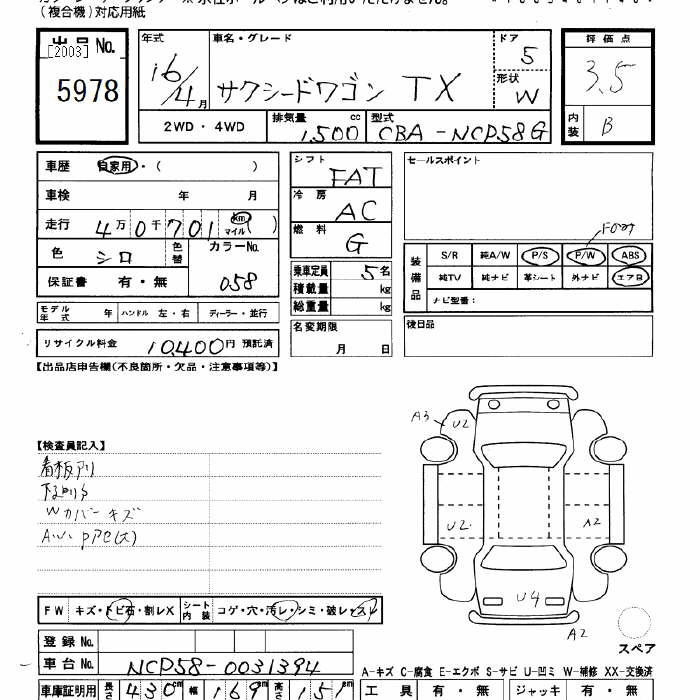 (複合機)対応用紙
出品 No.
[2003]
5978
年式
16/4月
車名・グレード
サクシードワゴン TX
ドア
5
形状
W
評価点
3.5
内装
B
2WD・4WD
排気量
1,500 cc
型式
CBA-NCP58G
車歴 自家用・( )
車検 年 月
走行 4万0千701 km マイル( )
色 シロ 色替
カラーNo. 058
保証書 有・無
シフト FAT
冷房 AC
燃料 G
乗車定員 5名
積載量 kg
総重量 kg
セールスポイント
装備品
S/R 純A/W P/S P/W ABS
純TV 純ナビ 革シート 外ナビ エアB
ナビ型番:
モデル年式 年 ハンドル 左・右 ディーラー・並行
名変期限
月 日
後日品
リサイクル料金 10,400円 預託済
【出品店申告欄(不良箇所・欠品・注意事項等)】
A3
U2
【検査員記入】
看板アリ
下廻りS
Wカバーキズ
U2
A2
U4
A2
FW キズ・トビ石・割レX シート内装 コゲ・穴・汚レ・シミ・破レ・スレ
スペア
登録 No.
車台 No. NCP58-0031394
A-キズ C-腐食 E-エクボ S-サビ U-凹ミ W-補修 XX-交換済
車庫証明用 長さ 430cm 幅 169cm 高さ 151cm
工具 有・無 ジャッキ 有・無